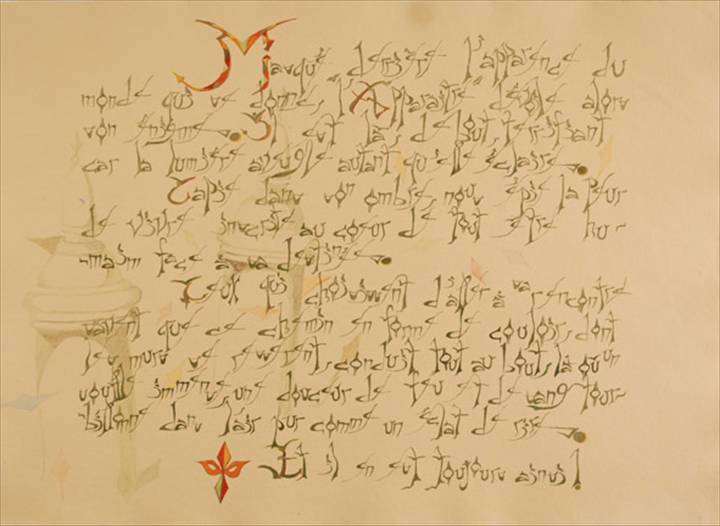 Masqué derrière l'apparence du
monde qui se donne, l'Apparaître dévoile alors
son énigme. Il est là, debout, terrifiant
car la lumière aveugle autant qu'elle éclaire.
Tapie dans son ombre, nous épie la peur
de vivre inscrite au coeur de tout être hu-
-main face à sa destinée.
Ceux qui choisissent d'aller à sa rencontre
savent que ce chemin en forme de couloir, dont
les murs se resserrent, conduit tout au bout, là où un
souffle immense, une douceur de feu et de sang tour-
-billonne dans l'air pur comme un éclat de rire.
Et il en est toujours ainsi !